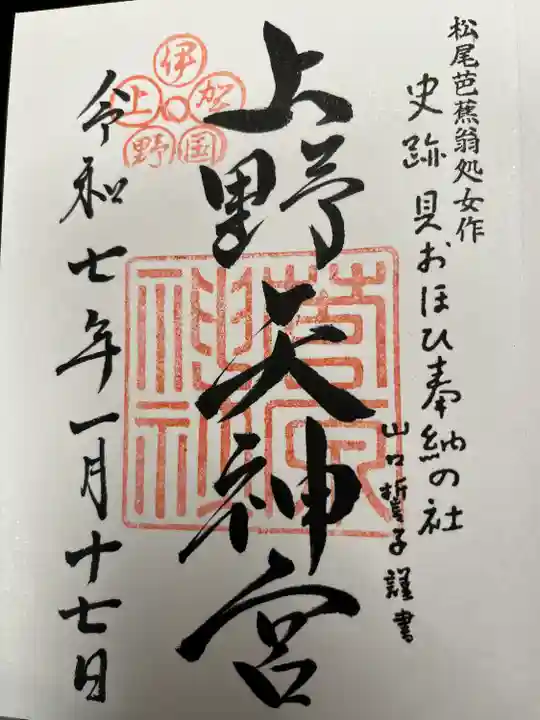 松尾芭蕉翁処女作
史跡 貝おほひ奉納の社
山口誓子謹書
上野天神宮
伊賀国上野
菅原神社
令和七年一月十七日